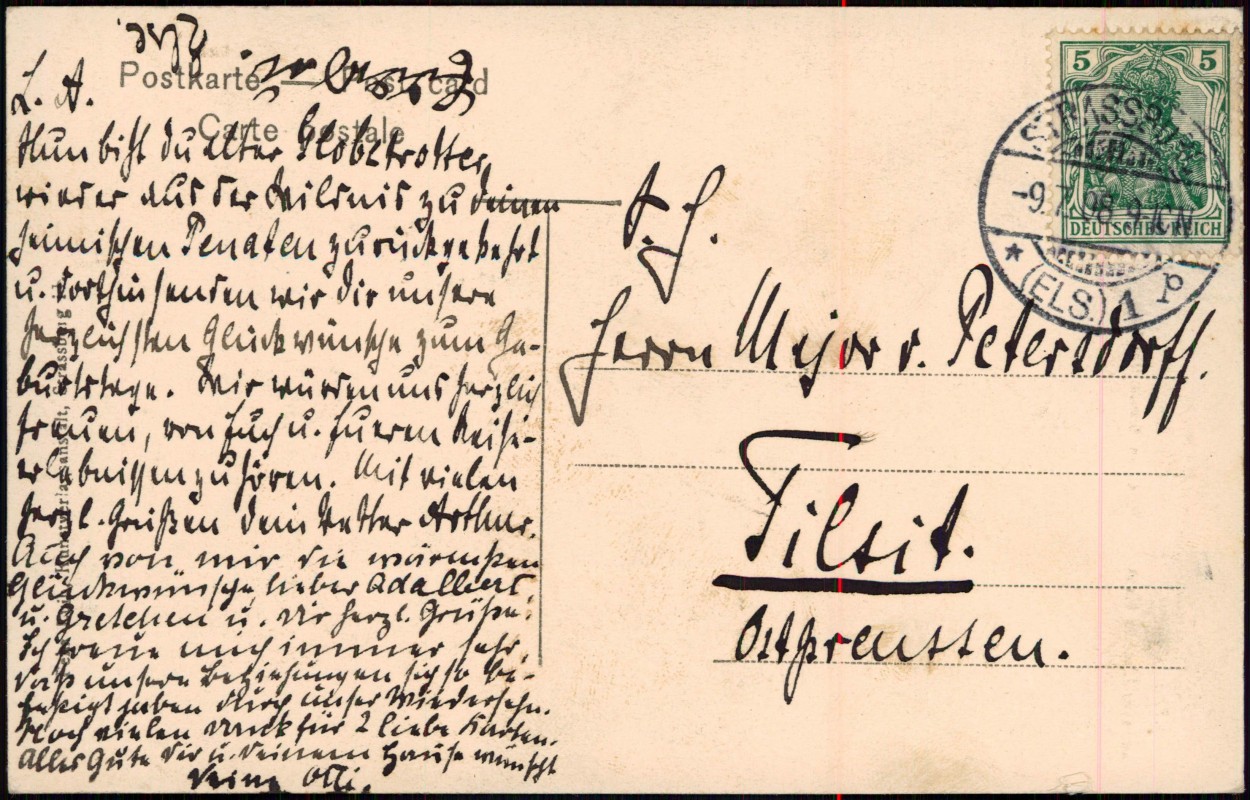 Postkarte — Post card
Carte postale
L. A.
Nun bist du alter Globetrotter,
wieder aus der Wildnis zu deinen
heimischen Penaten zurückgekehrt
u. dorthin senden wir dir unsere
herzlichsten Glückwünsche zum Ge-
burtstage. Wir würden uns herzlich
freuen, von Euch u. Eueren Reise-
erlebnissen zu hören. Mit vielen
herzl. Grüßen dein Vetter Arthur.
Auch von mir die wärmsten
Glückwünsche lieber Adalbert,
u. Gretchen u. dir herzl. Grüße.
Ich freue mich immer sehr,
daß unsere Beziehungen sich so be-
festigt haben durch unser Wiedersehn.
Noch vielen Dank für 2 liebe Karten.
Alles Gute dir u. deinem Hause wünscht
Deine
5 5
DEUTSCHES REICH
STRASSBURG
-9.7.08 9-10N
★ (ELS.) 1 p
Herrn Major v. Petersdorff.
Tilsit.
Ostpreussen.